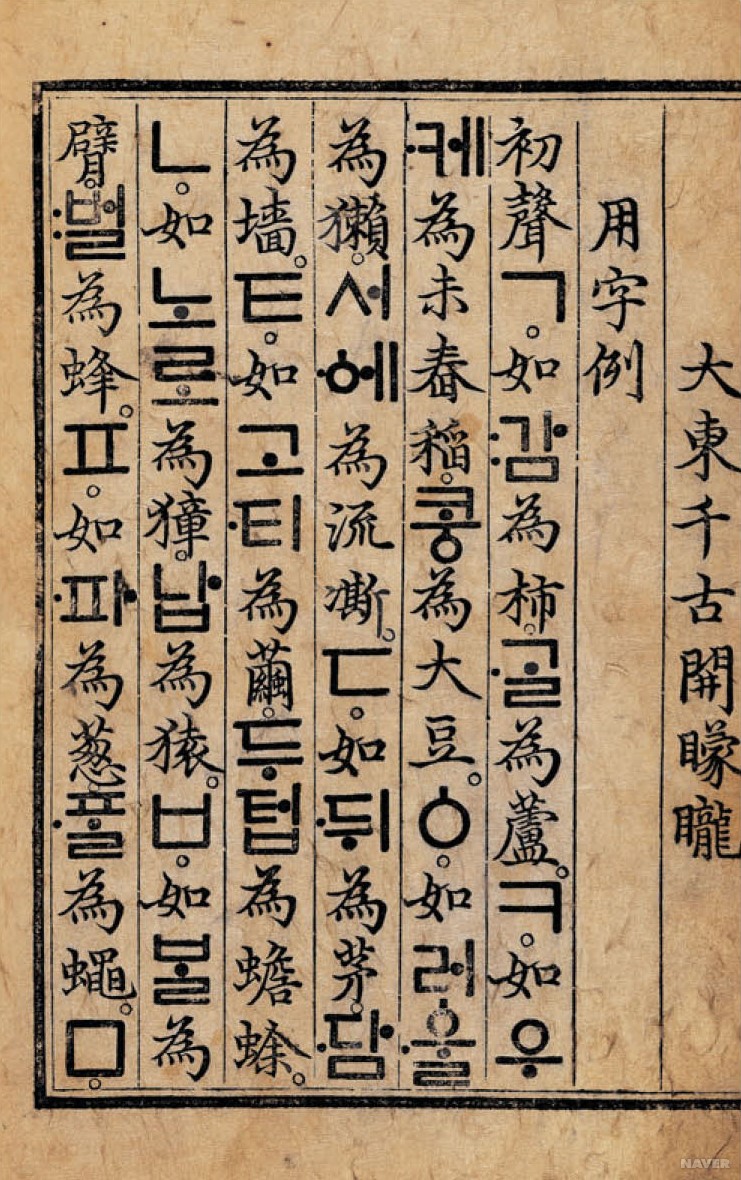 大東千古開矇矓
用字例
初聲ㄱ。如:감為柿。·ᄀᆞᆯ為蘆。ㅋ。如우
·케為未舂稻。코ᇰ為大豆。ㆁ。如러·ᅌᅮᆯ
為獺。서·ᅌᅦ為流凘。ㄷ。如·뒤為茅。·담
為墻。ㅌ。如고·티為繭。두텁為蟾蜍。
ㄴ。如노로為獐。납為猿。ㅂ。如ᄇᆞᆯ為
臂。:벌為蜂。ㅍ。如·파為葱。·ᄑᆞᆯ為蠅。ㅁ。
NAVER